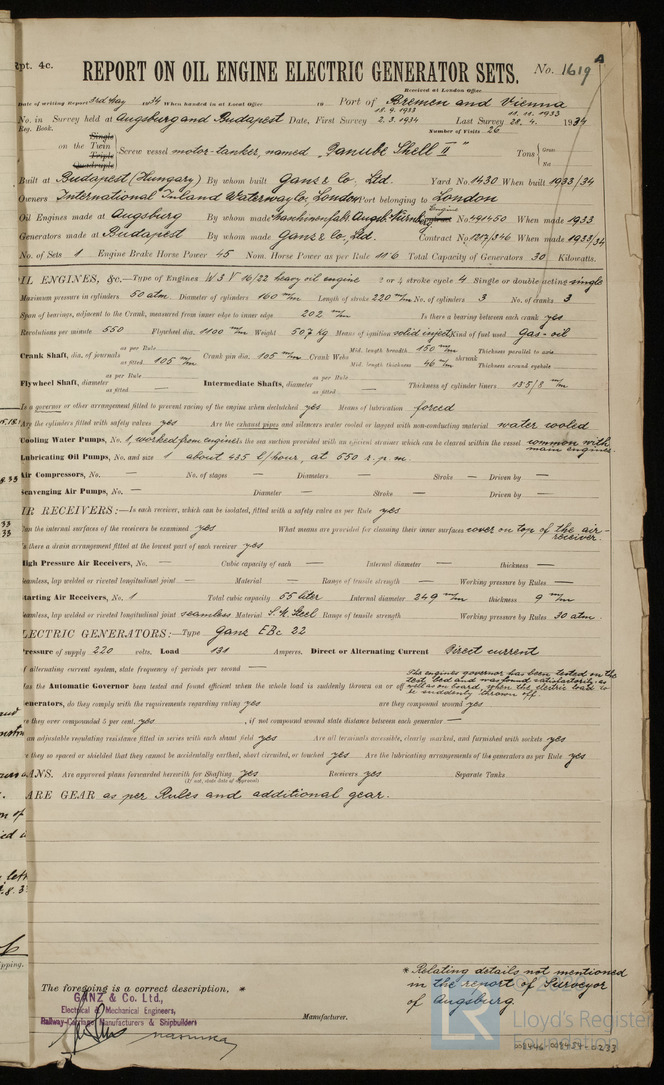 Rpt. 4c.
REPORT ON OIL ENGINE ELECTRIC GENERATOR SETS.
No. 1619
Received at London Office
Date of writing Report 3rd May 1934 When handed in at Local Office 19 Port of Bremen and Vienna
18.9.1933 11.11.1933
No. in Survey held at Augsburg and Budapest Date, First Survey 2.3.1934 Last Survey 28.4. 1934
Reg. Book.
Number of Visits 26
Single
on the Twin Screw vessel motor-tanker, named "Danube Shell II" Tons Gross
Triple
Quadruple
Net
Built at Budapest (Hungary) By whom built Ganz & Co. Ltd. Yard No. 1430 When built 1933/34
Owners International Inland Waterway Co, London Port belonging to London
Oil Engines made at Augsburg By whom made Maschinenfabr. Augsb. Nürnberg Engine Contract No. 491450 When made 1933
Generators made at Budapest By whom made Ganz & Co., Ltd. Contract No. 1217/346 When made 1933/34
No. of Sets 1 Engine Brake Horse Power 45 Nom. Horse Power as per Rule 11.6 Total Capacity of Generators 30 Kilowatts.
IL ENGINES, &c.—Type of Engines W 3 V 16/22 heavy oil engine 2 or 4 stroke cycle 4 Single or double acting single
Maximum pressure in cylinders 50 atm Diameter of cylinders 160 m/m Length of stroke 220 m/m No. of cylinders 3 No. of cranks 3
Span of bearings, adjacent to the Crank, measured from inner edge to inner edge 202 m/m Is there a bearing between each crank yes
Revolutions per minute 550 Flywheel dia. 1100 m/m Weight 507 kg Means of ignition solid inject. Kind of fuel used gas-oil
Crank Shaft, dia. of journals as per Rule as fitted 105 m/m Crank pin dia. 105 m/m Crank Webs Mid. length breadth 150 m/m Thickness parallel to axis
Mid. length thickness 46 m/m shrunk Thickness around eyehole
Flywheel Shaft, diameter as per Rule as fitted — Intermediate Shafts, diameter as per Rule as fitted — Thickness of cylinder liners 13.5/8 m/m
Is a governor or other arrangement fitted to prevent racing of the engine when declutched yes Means of lubrication forced
Are the cylinders fitted with safety valves yes Are the exhaust pipes and silencers water cooled or lagged with non-conducting material water cooled
Cooling Water Pumps, No. 1, worked from engine Is the sea suction provided with an efficient strainer which can be cleared within the vessel common with main engines
Lubricating Oil Pumps, No. and size 1 about 435 l/hour, at 550 r.p.m.
Air Compressors, No. — No. of stages — Diameters — Stroke — Driven by —
Scavenging Air Pumps, No. — Diameter — Stroke — Driven by —
IR RECEIVERS:—Is each receiver, which can be isolated, fitted with a safety valve as per Rule yes
Can the internal surfaces of the receivers be examined yes What means are provided for cleaning their inner surfaces cover on top of the air-receiver.
Is there a drain arrangement fitted at the lowest part of each receiver yes
High Pressure Air Receivers, No. — Cubic capacity of each — Internal diameter — thickness —
Seamless, lap welded or riveted longitudinal joint — Material — Range of tensile strength — Working pressure by Rules —
Starting Air Receivers, No. 1 Total cubic capacity 55 liter Internal diameter 249 m/m thickness 9 m/m
Seamless, lap welded or riveted longitudinal joint seamless Material S.M. Steel Range of tensile strength Working pressure by Rules 30 atm.
LECTRIC GENERATORS:—Type Ganz EBc 22
Pressure of supply 220 volts. Load 131 Amperes. Direct or Alternating Current Direct current
If alternating current system, state frequency of periods per second —
Has the Automatic Governor been tested and found efficient when the whole load is suddenly thrown on or off The engines governor has been tested on the test bed and was found satisfactorily, as well as on board, when the electric load to be suddenly thrown off.
Generators, do they comply with the requirements regarding rating yes are they compound wound yes
are they over compounded 5 per cent. yes, if not compound wound state distance between each generator —
an adjustable regulating resistance fitted in series with each shunt field yes Are all terminals accessible, clearly marked, and furnished with sockets yes
are they so spaced or shielded that they cannot be accidentally earthed, short circuited, or touched yes Are the lubricating arrangements of the generators as per Rule yes
LANS. Are approved plans forwarded herewith for Shafting yes Receivers yes Separate Tanks
(If not, state date of approval)
ARE GEAR as per Rules and additional gear.
* Relating details not mentioned
in the report of Surveyor
of Augsburg
The foregoing is a correct description, *
GANZ & Co. Ltd.,
Electrical & Mechanical Engineers,
Railway-Carriage Manufacturers & Shipbuilders
Manufacturer.
© 2020
LR Lloyd's Register
Foundation
008446-008454-0233